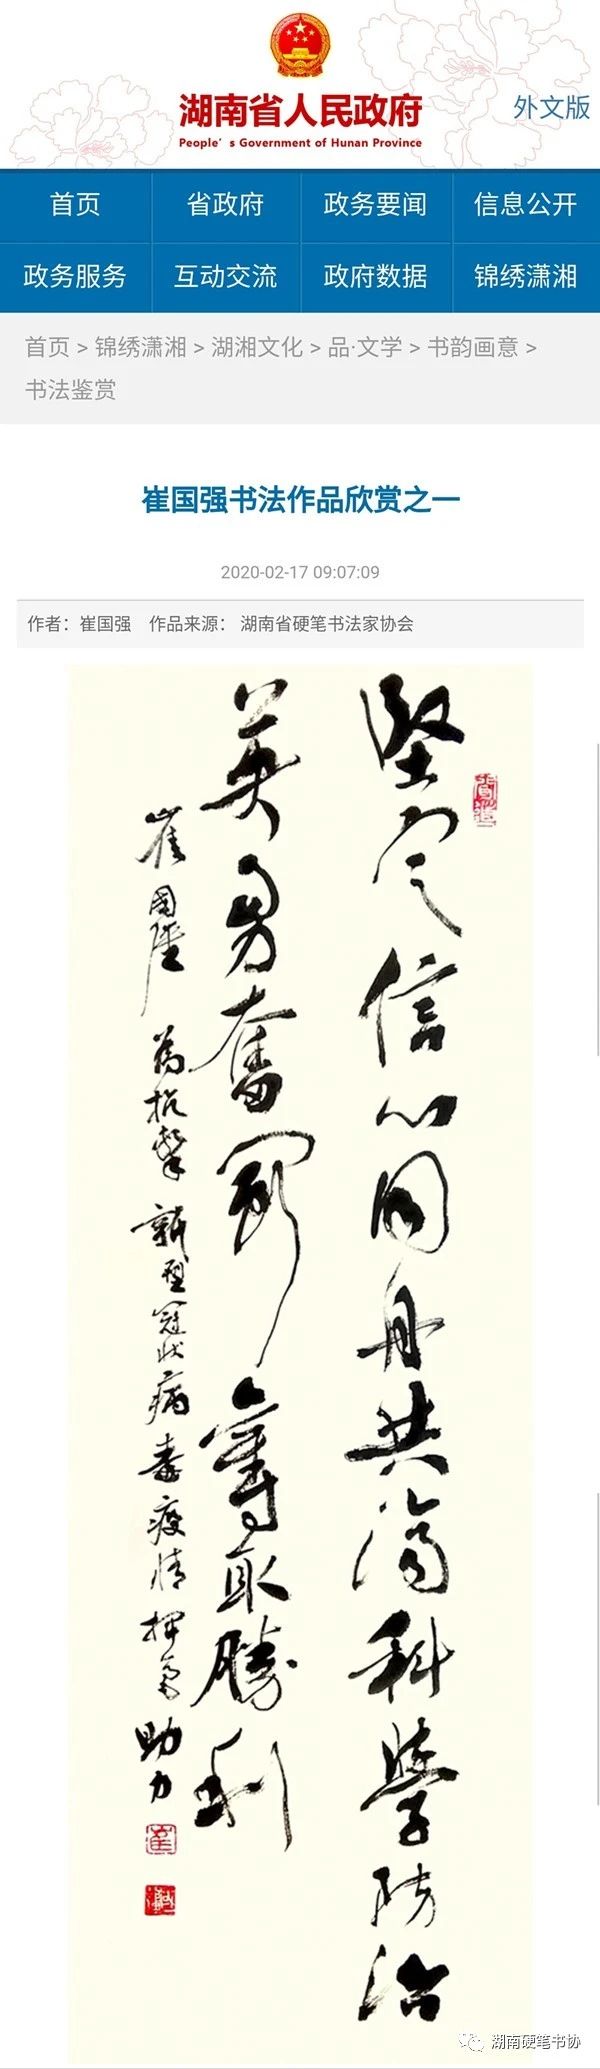 湖南省人民政府
People's Government of Hunan Province
外文版
首页 省政府 政务要闻 信息公开
政务服务 互动交流 政府数据 锦绣潇湘
首页 > 锦绣潇湘 > 湖湘文化 > 品·文学 > 书韵画意 >
书法鉴赏
崔国强书法作品欣赏之一
2020-02-17 09:07:09
作者：崔国强 作品来源： 湖南省硬笔书法家协会
堅定信心同舟共濟科學防治
英勇奮鬥奪取勝利
崔國強 為抗擊新型冠狀病毒疫情揮毫助力
湖南硬笔书协